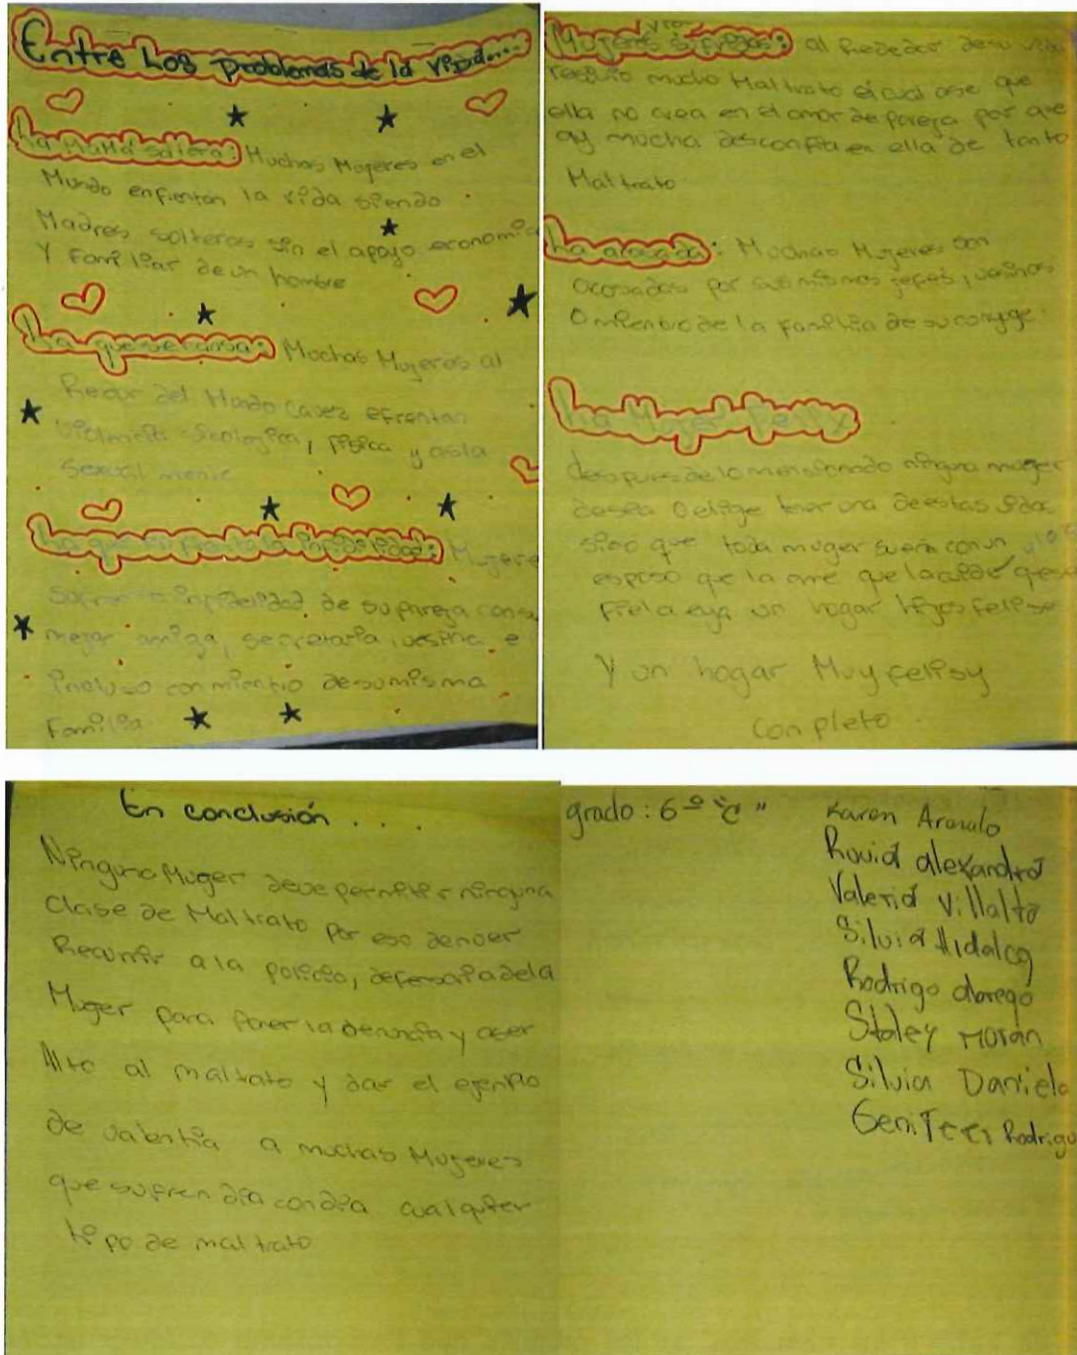 Entre Los problemas de la vida....
La Mamá soltera: Muchas Mugeres en el
Mundo enfrentan la vida siendo
Madres solteras sin el apoyo economico
Y Familiar de un hombre
La que se cansa: Muchas Mugeres al
Redor del Mundo
violencia sicologica, fisica y asta
Sexual mente
La que enfrenta la infidelidad: Mugeres
Sufren infidelidad de su pareja con su
mejor amiga, secretaria, vesina e
incluso con mienbro de su misma
Familia
Mugeres sufridas: al Rededor de su vida
mucho Maltrato el cual ase que
ella no crea en el amor de pareja por que
ay mucha desconfia en ella de tanto
Maltrato
La acosada: Muchas Mugeres son
acosadas por sus mismos jefes, vesinos
O mienbro de la familia de su conyge
La Muger Feliz
despues de lo mensionado ninguna muger
desea O elige tener una de estas vidas
sino que toda muger sueña con un
esposo que la ame que la cuide que sea
Fiel a eya un hogar hijos felises
Y un hogar Muy felis y
conpleto
En conclusión . . .
Ninguna Muger deve permitir ninguna
Clase de Maltrato por eso
Recurrir a la policia, defensoria de la
Muger para poner la denuncia y aser
Alto al maltrato y dar el ejenplo
de valentia a muchas Mugeres
que sufren dia con dia cualquier
tipo de maltrato
grado: 6º "C"
Karen
alexandra
Valeria Villalta
Silvia Hidalgo
Rodrigo abrego
Staley Morán
Silvia Daniela
Rodrigu